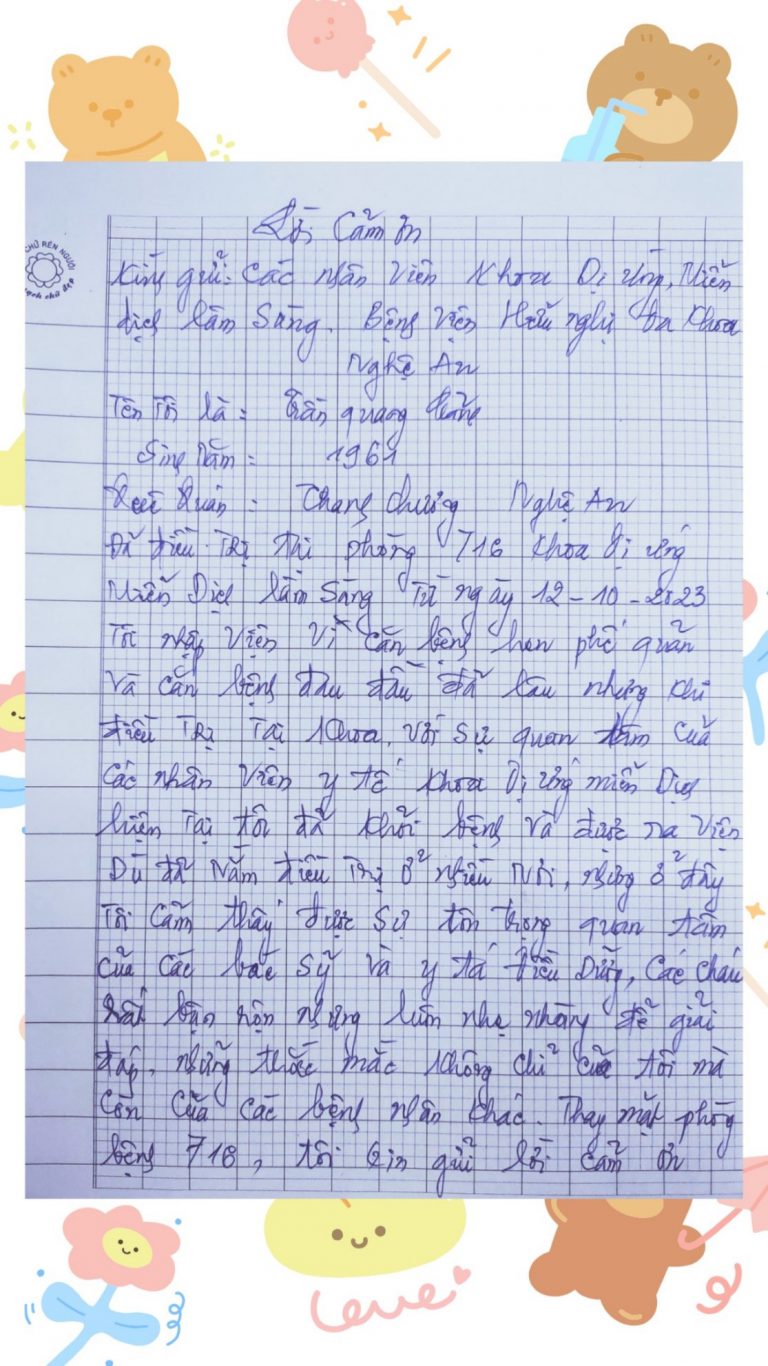 Lời Cảm ơn
CHỮ RÈN NGƯỜI
sạch chữ đẹp
Kính gửi: Các nhân viên Khoa Dị ứng, Miễn
dịch lâm Sàng. Bệnh Viện Hữu nghị Đa Khoa
Nghệ An
Tên Tôi là: Trần quang
Sinh Năm: 1961
Quê Quán: Thanh chương Nghệ An
Đã điều Trị tại phòng 716 Khoa Dị ứng
Miễn Dịch lâm Sàng Từ ngày 12-10-2023
Tôi nhập viện Vì căn bệnh hen phế quản
Và căn bệnh đau đầu đã lâu nhưng khi
điều Trị Tại Khoa, Với Sự quan tâm Của
Các nhân Viên y tế Khoa Dị ứng miễn Dịch
hiện Tại tôi đã khỏi bệnh và được ra Viện
Dù đã Nằm điều Trị ở nhiều Nơi, nhưng ở đây
Tôi Cảm thấy được Sự tôn trọng quan tâm
của các bác Sỹ Và y tá điều Dưỡng, Các cháu
rất bận rộn nhưng luôn nhẹ nhàng để giải
đáp, những thắc mắc không chỉ của tôi mà
Còn Của các bệnh nhân khác. Thay mặt phòng
bệnh 716, tôi Xin gửi lời cảm ơn
Love